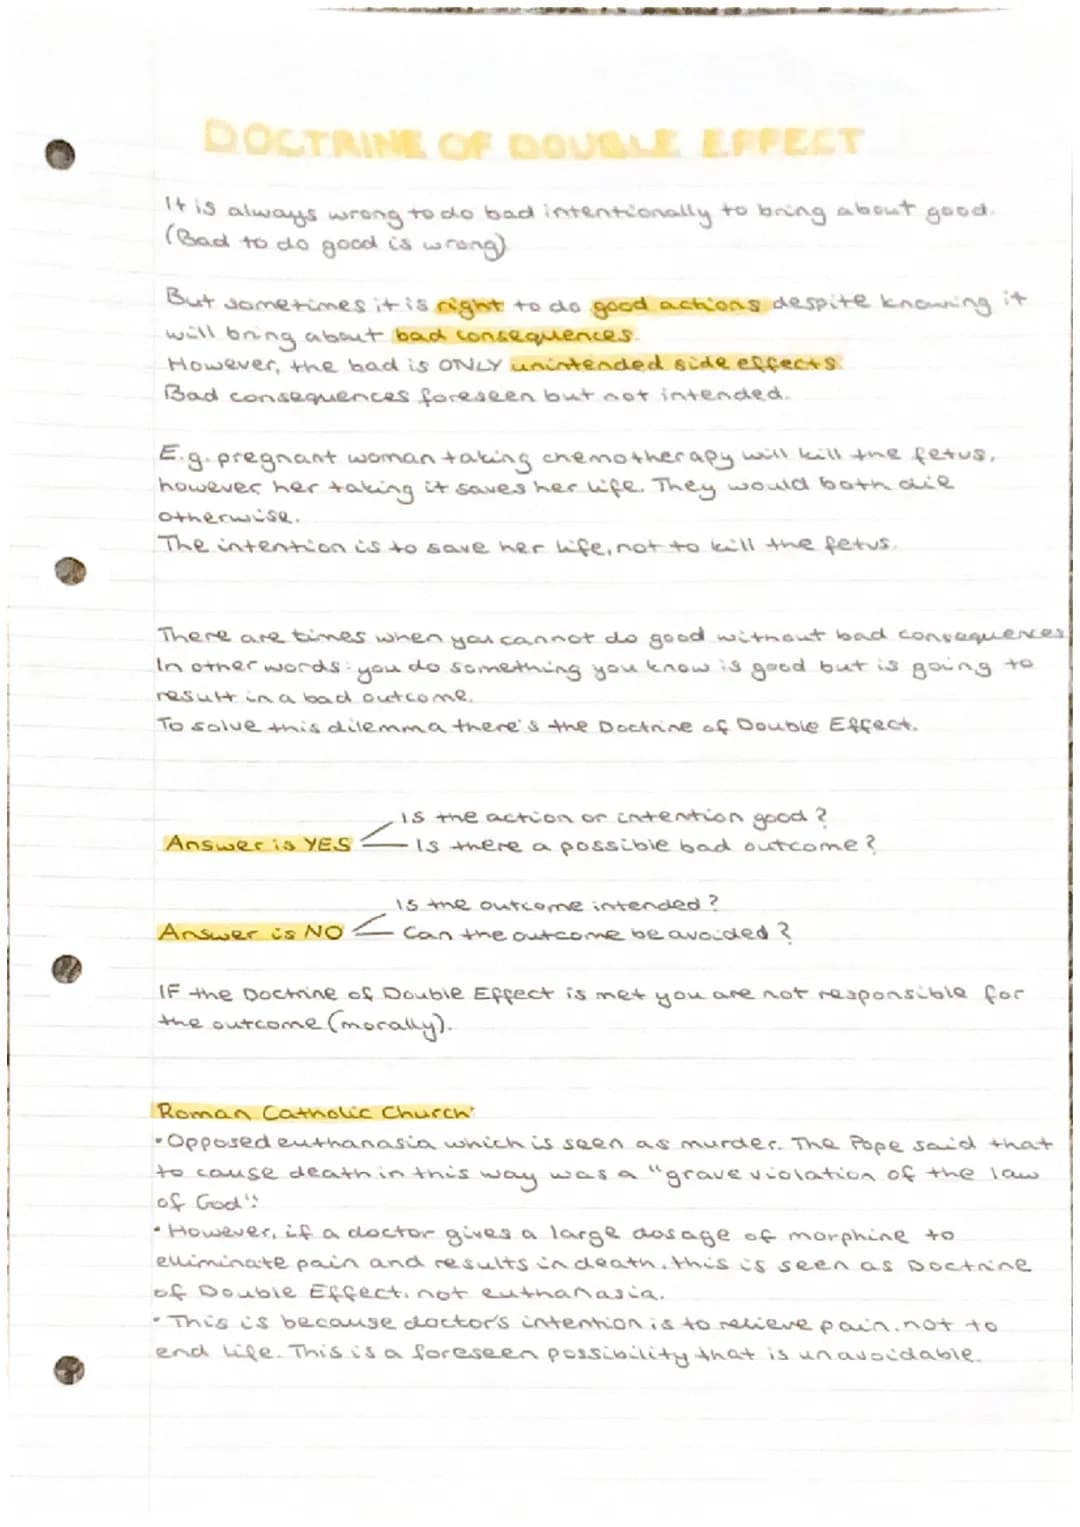 DOCTRINE OF DOUBLE EFFECT
It is always wrong to do bad intentionally to bring about good.
(Bad to do good is wrong)
But sometimes it is right to do good actions despite knowing it
will bring about bad consequences.
However, the bad is ONLY unintended side effects.
Bad consequences foreseen but not intended.
E.g. pregnant woman taking chemotherapy will kill the fetus,
however her taking it saves her life. They would both die
otherwise.
The intention is to save her life, not to kill the fetus.
There are times when you cannot do good without bad consequences
In other words: you do something you know is good but is going to
result in a bad outcome.
To solve this dilemma there's the Doctrine of Double Effect.
Is the action or intention good?
Answer is YES Is there a possible bad outcome?
Is the outcome intended?
Answer is NO Can the outcome be avoided?
IF the Doctrine of Double Effect is met you are not responsible for
the outcome (morally).
Roman Catholic Church:
• Opposed euthanasia which is seen as murder. The Pope said that
to cause death in this way was a "grave violation of the law
of God".
• However, if a doctor gives a large dosage of morphine to
elliminate pain and results in death, this is seen as Doctrine
of Double Effect, not euthanasia.
• This is because doctor's intention is to relieve pain, not to
end life. This is a foreseen possibility that is unavoidable.